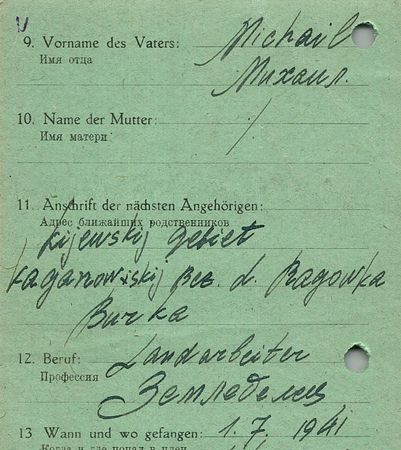 9. Vorname des Vaters: Michail
Имя отца Михаил.
10. Name der Mutter: /
Имя матери
11. Anschrift der nächsten Angehörigen:
Адрес ближайших родственников
Kijewskij Gebiet
Kaganowiskij Bez. d. Ragowka
Burka
12. Beruf: Landarbeiter
Профессия Земледелец
13 Wann und wo gefangen: 1. 7. 1941
Когда и где попал в плен